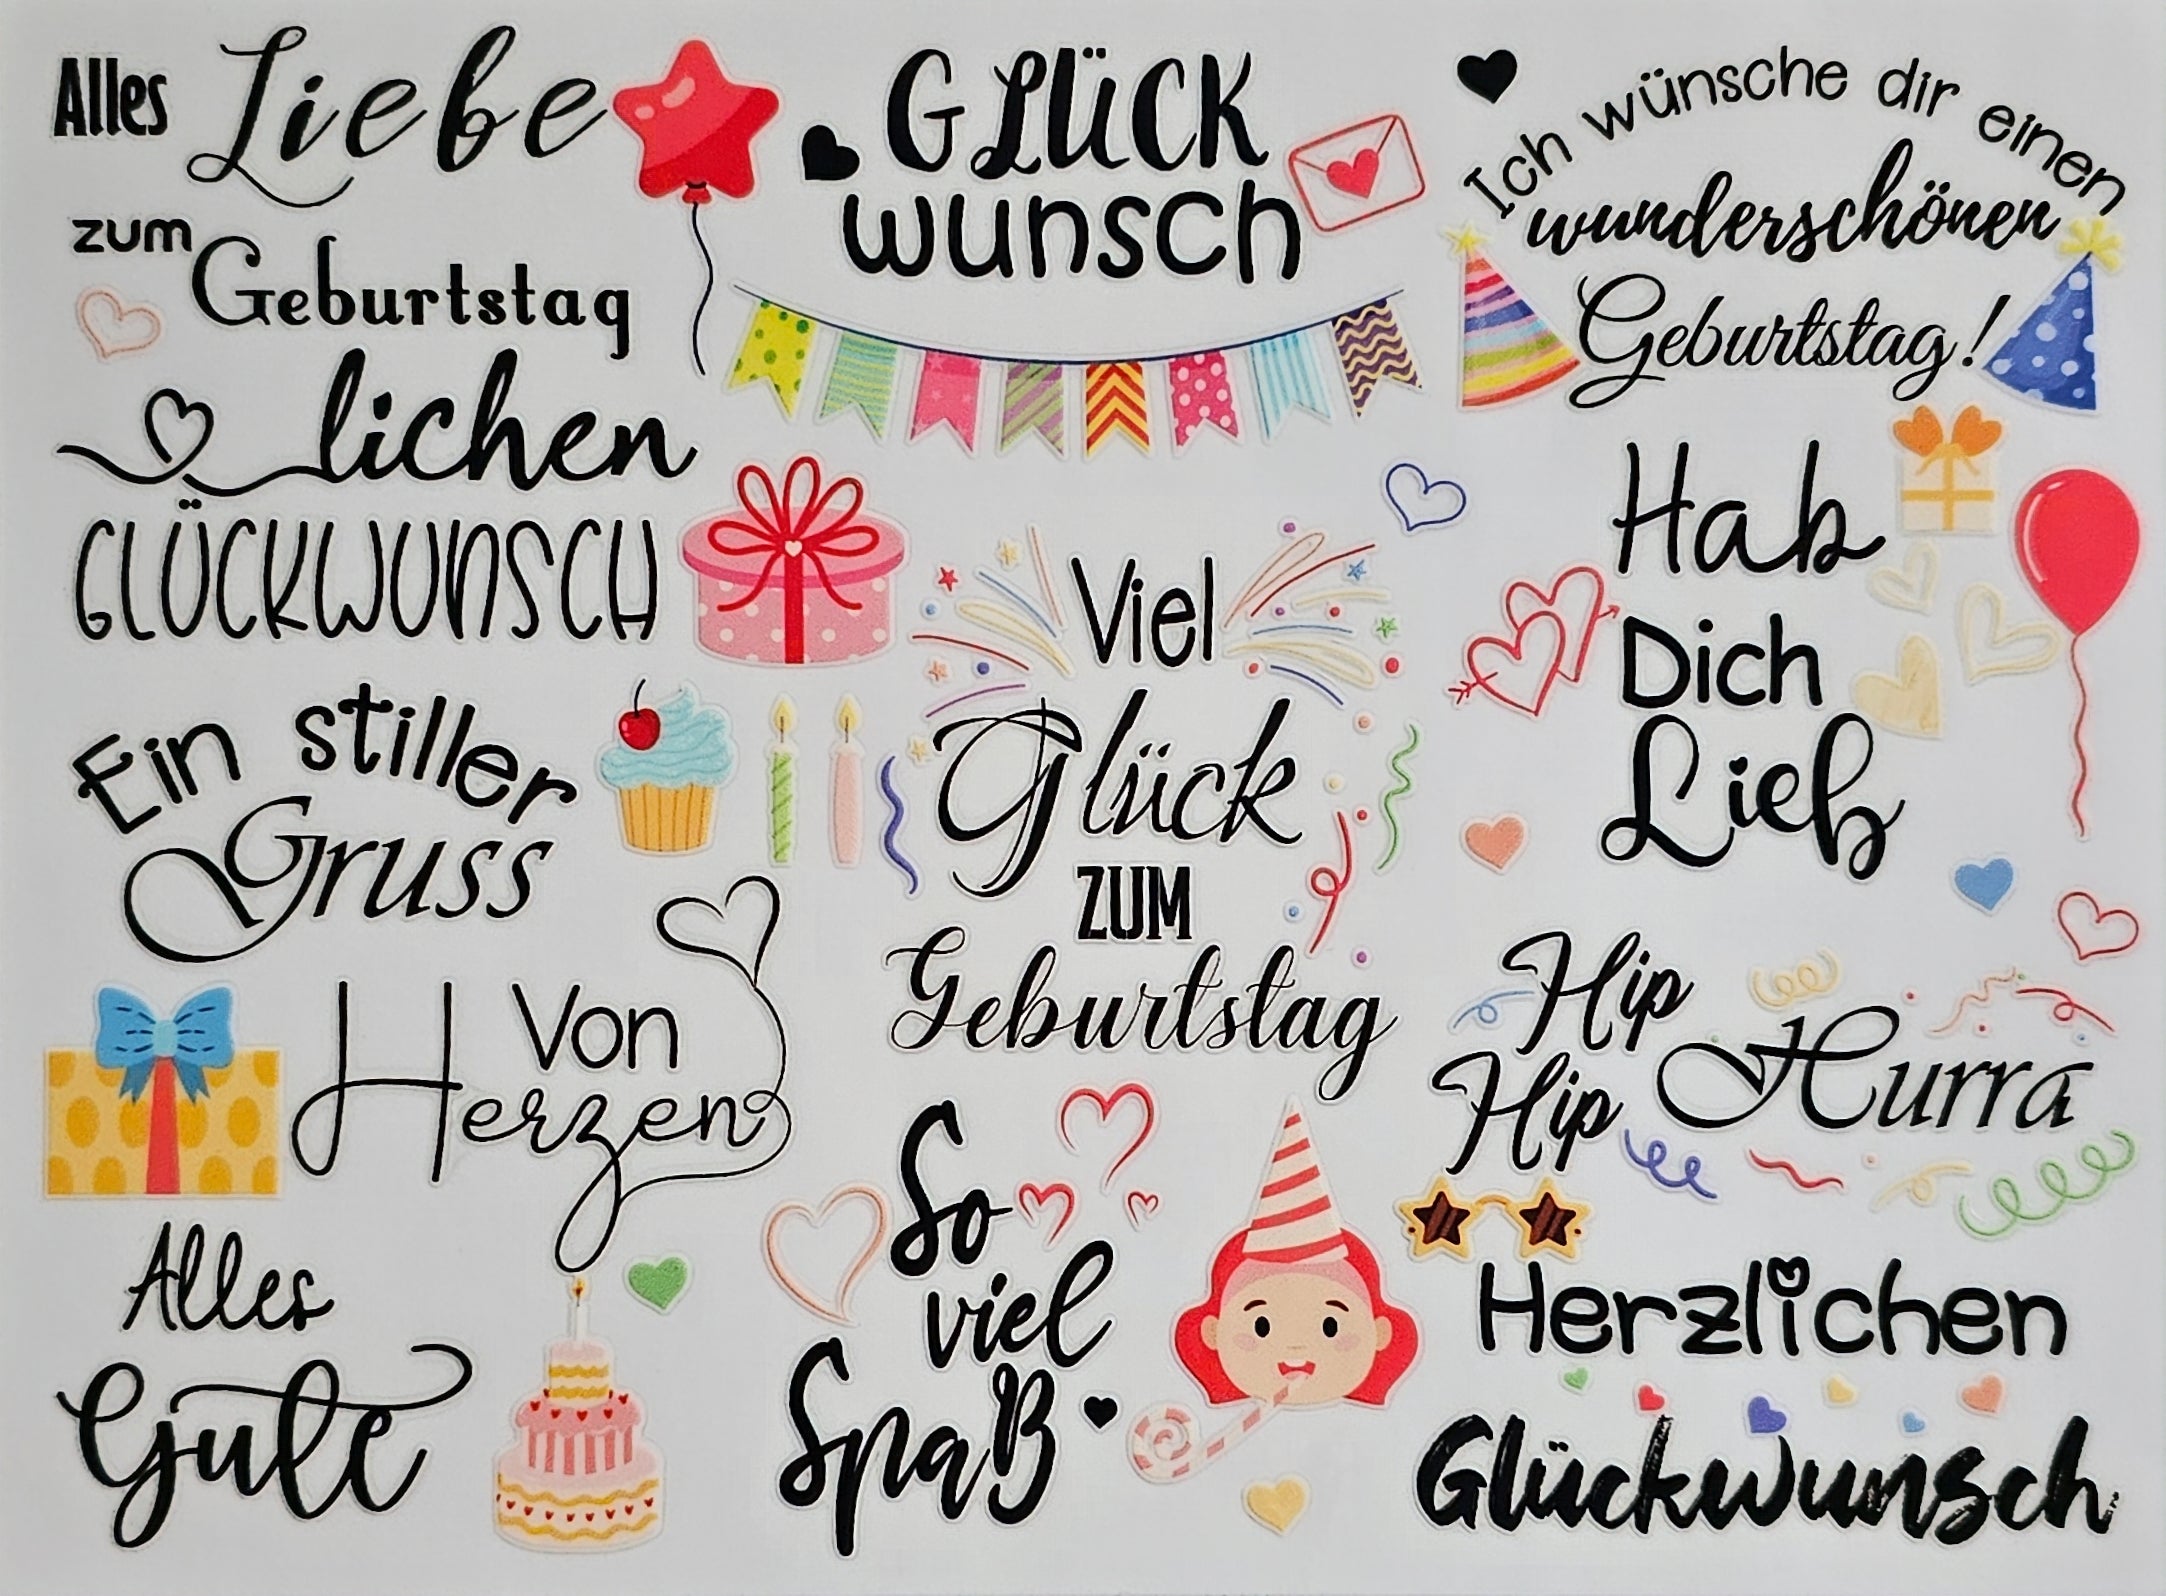 Alles Liebe
zum Geburtstag
lichen
GLÜCKWUNSCH
Ein stiller
Gruss
Von
Herzen
Alles
Gute
GLÜCK
wunsch
Viel
Glück
ZUM
Geburtstag
So
viel
Spaß
Ich wünsche dir einen
wunderschönen
Geburtstag!
Hab
Dich
Lieb
Hip
Hip Hurra
Herzlichen
Glückwunsch